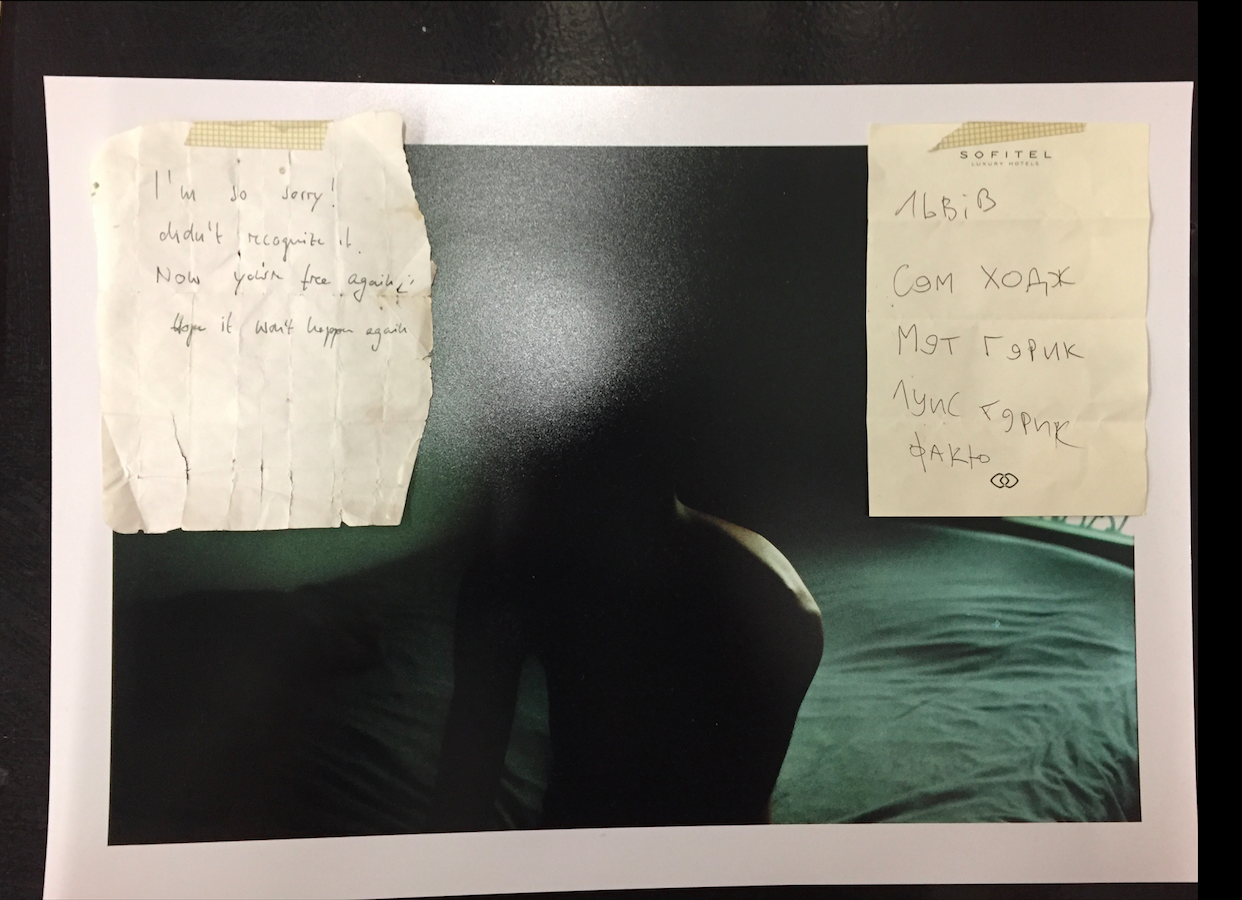 I'm so sorry!
didn't recognize it.
Now you're free again
Hope it won't happen again
SOFITEL
LUXURY HOTELS
Львів
Сэм ХОДЖ
Мэт Гэрик
Луис Гэрик
ФАКЮ